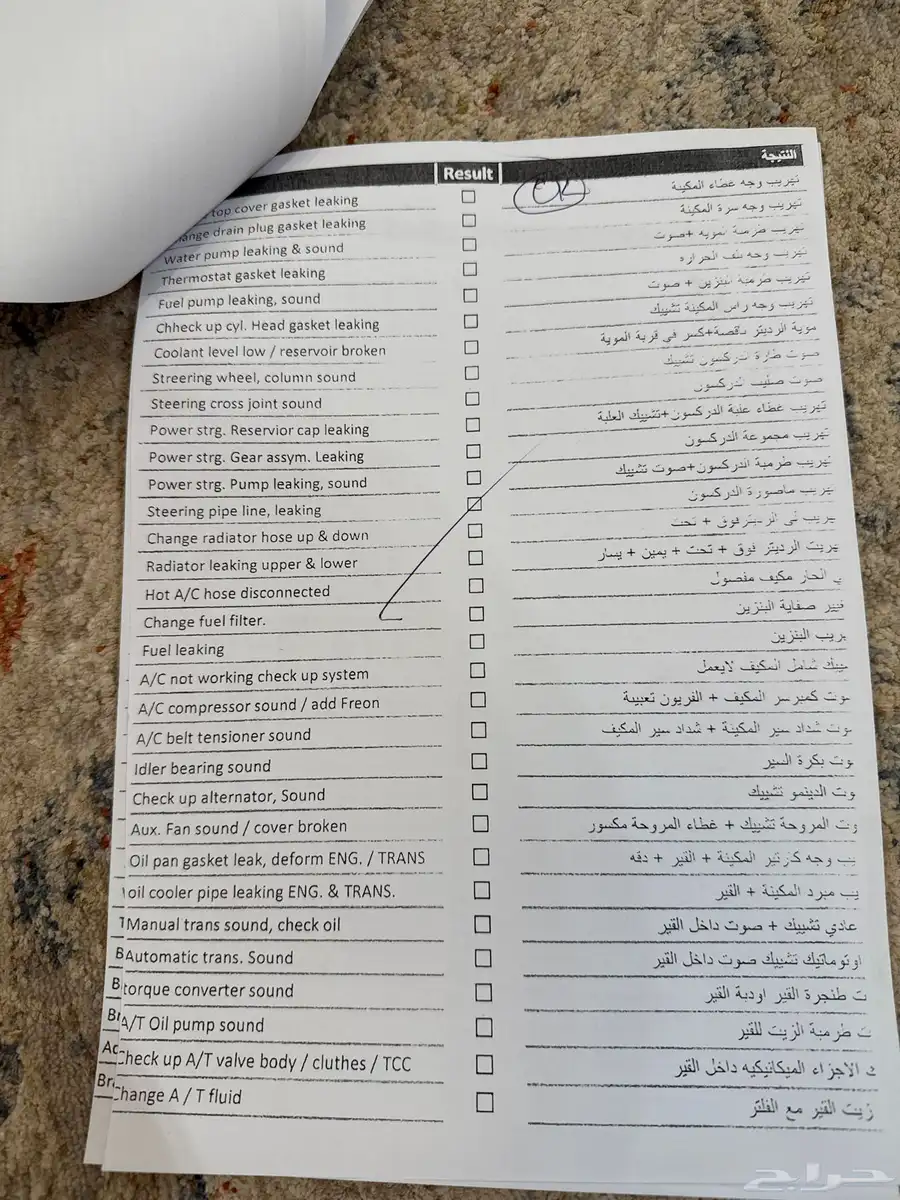 Result النتيجة
top cover gasket leaking ☐ OK تهريب وجه غطاء المكينة
ange drain plug gasket leaking ☐ تهريب وجه سرة المكينة
Water pump leaking & sound ☐ تهريب طرمبة المويه +صوت
Thermostat gasket leaking ☐ تهريب وجه بلف الحراره
Fuel pump leaking, sound ☐ تهريب طرمبة البنزين + صوت
Chheck up cyl. Head gasket leaking ☐ تهريب وجه راس المكينة تشييك
Coolant level low / reservoir broken ☐ موية الرديتر ناقصة+كسر في قربة الموية
Streering wheel, column sound ☐ صوت طارة الدركسون تشييك
Steering cross joint sound ☐ صوت صليب الدركسون
Power strg. Reservior cap leaking ☐ تهريب غطاء علبة الدركسون+تشييك العلبة
Power strg. Gear assym. Leaking ☐ تهريب مجموعة الدركسون
Power strg. Pump leaking, sound ☐ تهريب طرمبة الدركسون+صوت تشييك
Steering pipe line, leaking ☐ هريب ماصورة الدركسون
Change radiator hose up & down ☐ هريب لي الرديتر فوق + تحت
Radiator leaking upper & lower ☐ هريت الرديتر فوق + تحت + يمين + يسار
Hot A/C hose disconnected ☐ ي الحار مكيف مفصول
Change fuel filter. ☐ غيير صفاية البنزين
Fuel leaking ☐ هريب البنزين
A/C not working check up system ☐ شييك شامل المكيف لايعمل
A/C compressor sound / add Freon ☐ صوت كمبرسر المكيف + الفريون تعبيية
A/C belt tensioner sound ☐ صوت شداد سير المكينة + شداد سير المكيف
Idler bearing sound ☐ وت بكرة السير
Check up alternator, Sound ☐ وت الدينمو تشييك
Aux. Fan sound / cover broken ☐ وت المروحة تشييك + غطاء المروحة مكسور
Oil pan gasket leak, deform ENG. / TRANS ☐ يب وجه كارتير المكينة + القير + دقه
oil cooler pipe leaking ENG. & TRANS. ☐ يب مبرد المكينة + القير
T Manual trans sound, check oil ☐ عادي تشييك + صوت داخل القير
B Automatic trans. Sound ☐ اوتوماتيك تشييك صوت داخل القير
B torque converter sound ☐ ت طنجرة القير اودبة القير
Br A/T Oil pump sound ☐ ت طرمبة الزيت للقير
Ac Check up A/T valve body / cluthes / TCC ☐ ك الاجزاء الميكانيكيه داخل القير
Bre hange A / T fluid ☐ زيت القير مع الفلتر
حراج